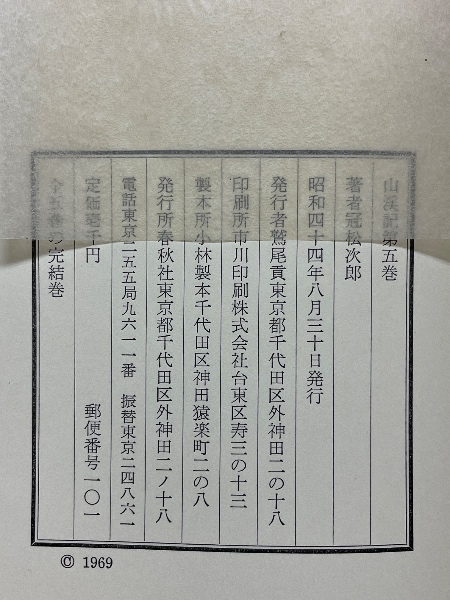 山渓記第五巻
著者冠松次郎
昭和四十四年八月三十日発行
発行者鷲尾貢東京都千代田区外神田二の十八
印刷所市川印刷株式会社台東区寿三の十三
製本所小林製本千代田区神田猿楽町二の八
発行所春秋社東京都千代田区外神田二ノ十八
電話東京二五五局九六一一番 振替東京二四八六一
定価壱千円 郵便番号一〇一
全五巻の完結巻
© 1969